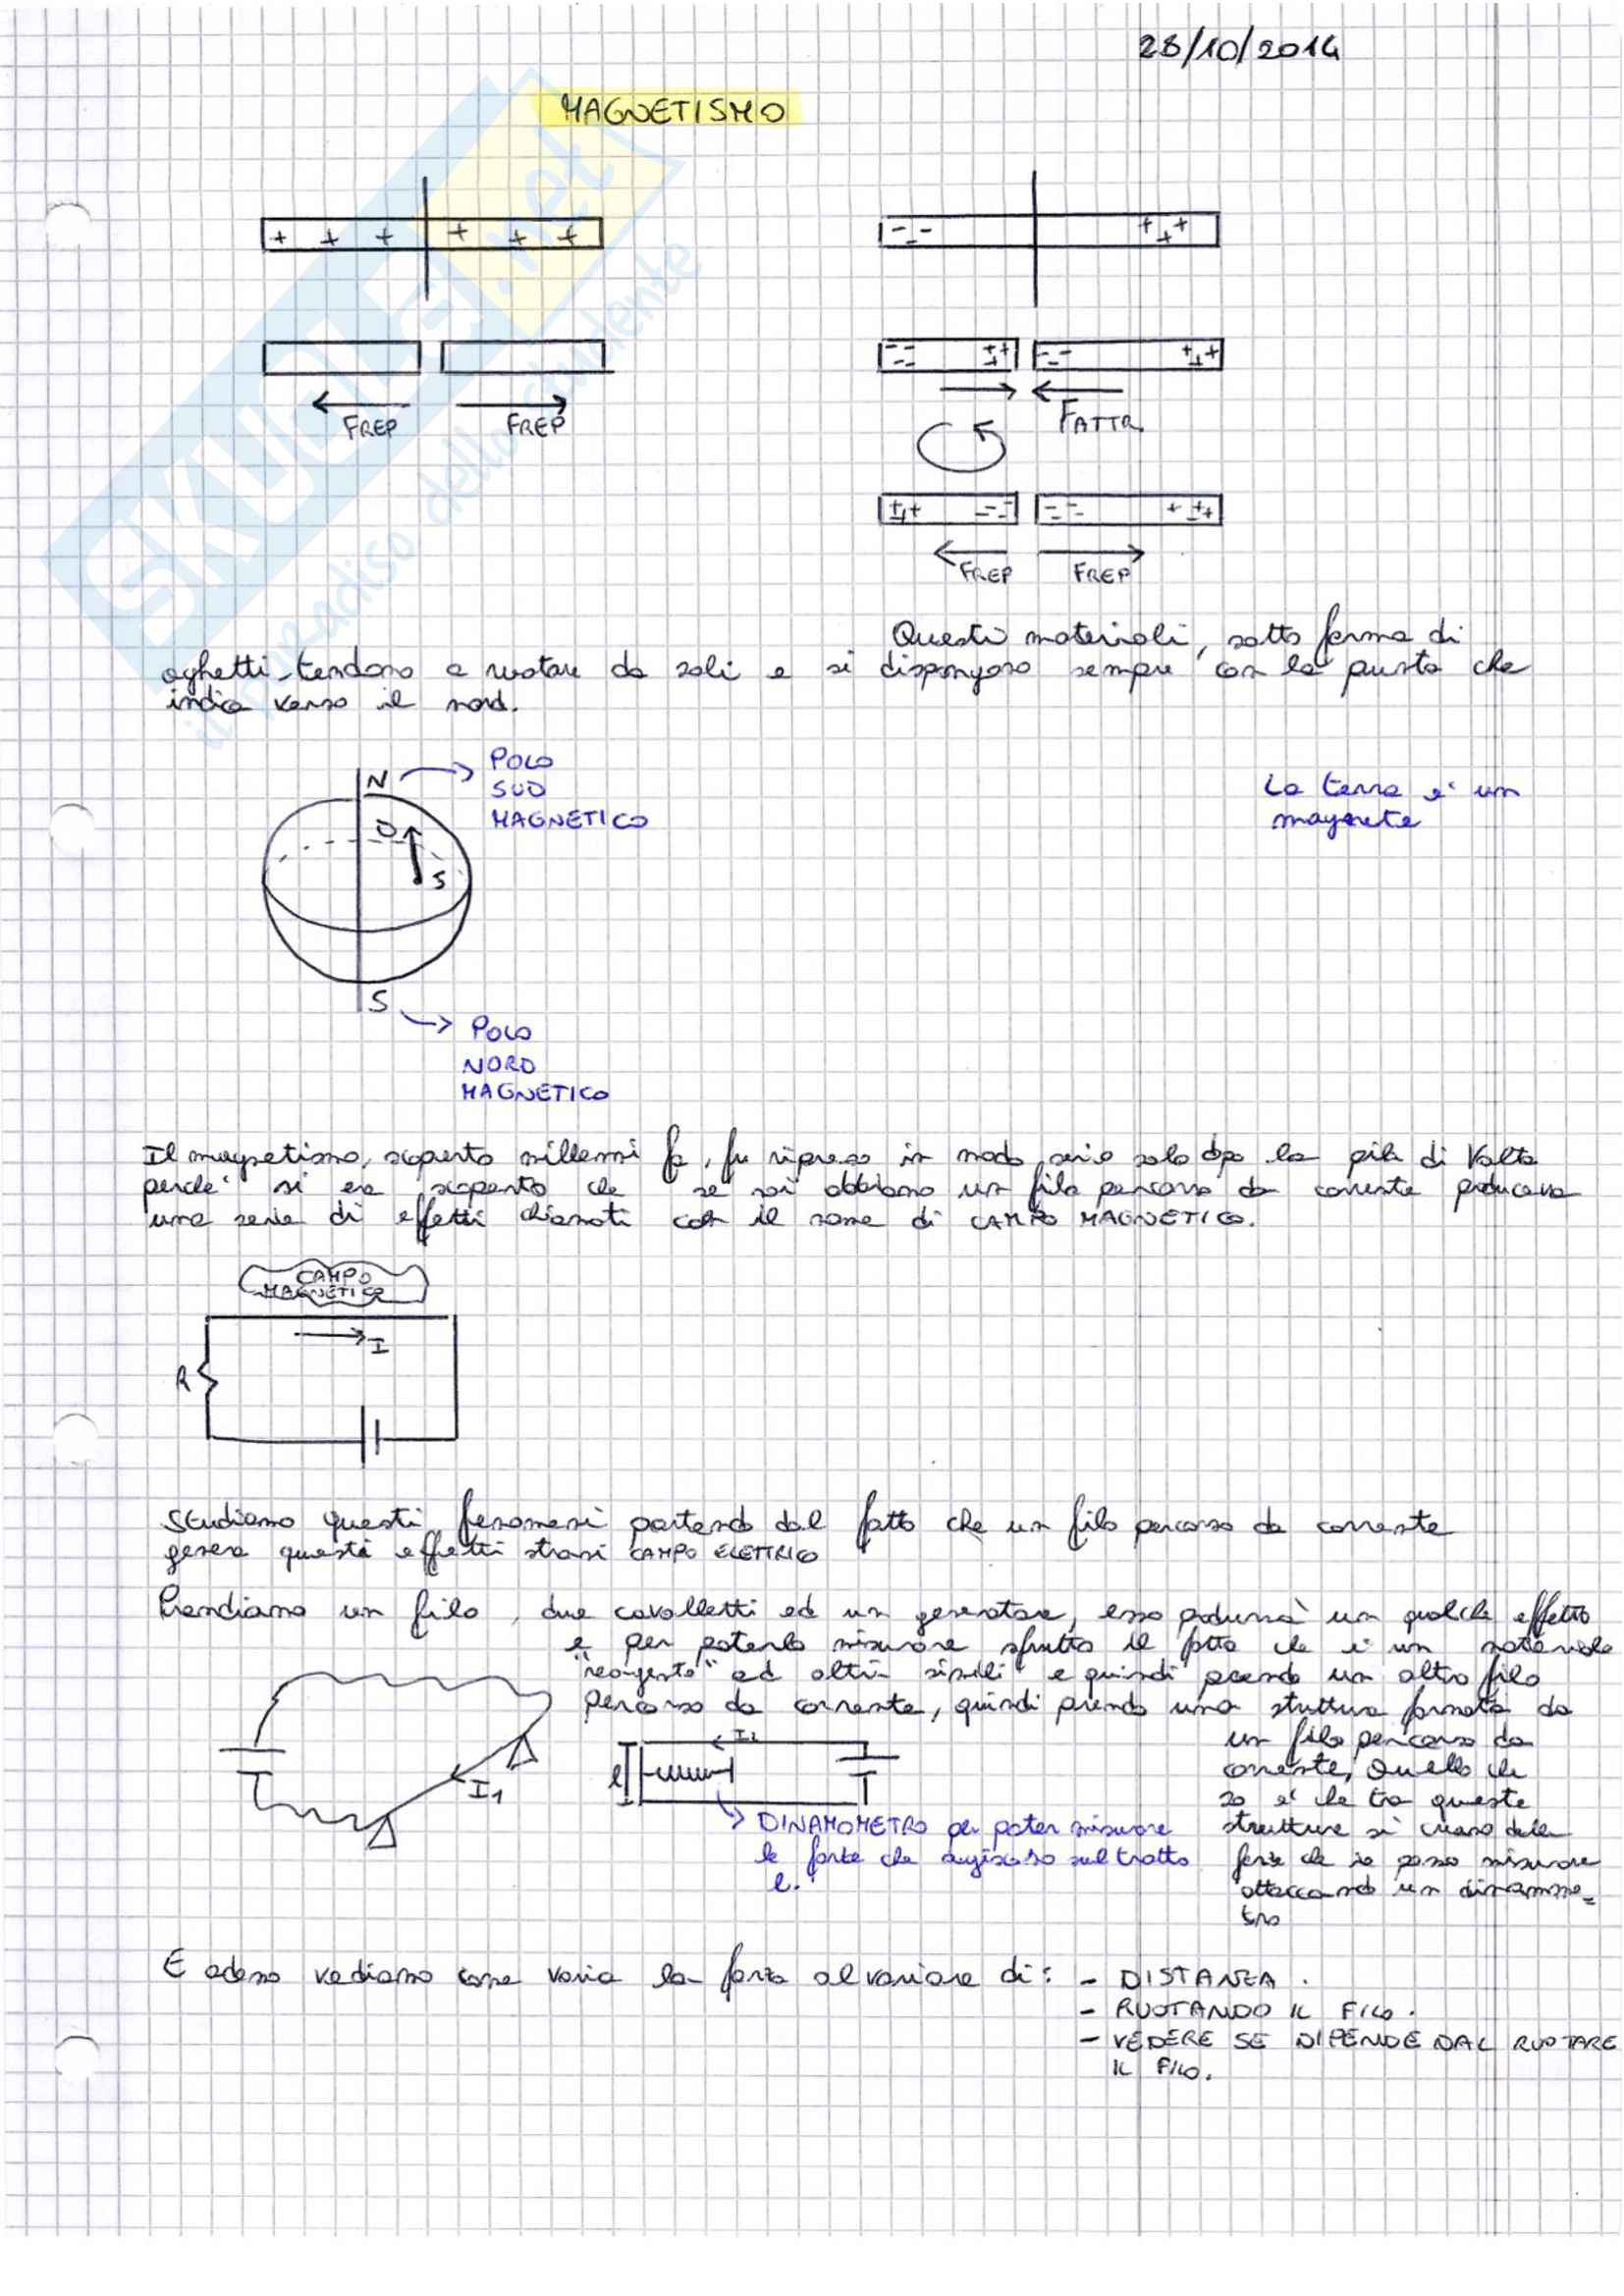 28/10/2014
MAGNETISMO
+ + + + + +
-- - + + +
FREP FREP
FATTR
FREP FREP
Questi materiali, sotto forma di
aghetti tendono a ruotare da soli e si dispongono sempre con la punta che
indica verso il nord.
N
POLO
SUD
MAGNETICO
La terra e' un
magnete
S
S
POLO
NORD
MAGNETICO
Il magnetismo, scoperto millenni fa, fu ripreso in modo serio solo dopo la pila di Volta
perche' si era scoperto che se noi abbiamo un filo percorso da corrente produceva
una serie di effetti chiamati con il nome di CAMPO MAGNETICO.
CAMPO
MAGNETICO
I
R
Studiamo questi fenomeni partendo dal fatto che un filo percorso da corrente
genera questi effetti strani CAMPO ELETTRICO
Prendiamo un filo, due cavalletti ed un generatore, esso produrrà un qualche effetto
e per poterlo misurare sfrutto il fatto che è un materiale
"reagente" ad altri simili e quindi prendo un altro filo
percorso da corrente, quindi prendo una struttura formata da
un filo percorso da
corrente. Quello che
so e' che tra queste
strutture si creano delle
forze che io posso misurare
attaccando un dinamome=
tro
I1
I2
l
DINAMOMETRO per poter misurare
le forze che agiscono sul tratto
l.
E adesso vediamo come varia la forza al variare di: - DISTANZA.
- RUOTANDO IL FILO.
- VEDERE SE DIPENDE DAL RUOTARE
IL FILO.
SKUOLA.net
il paradiso dello studente